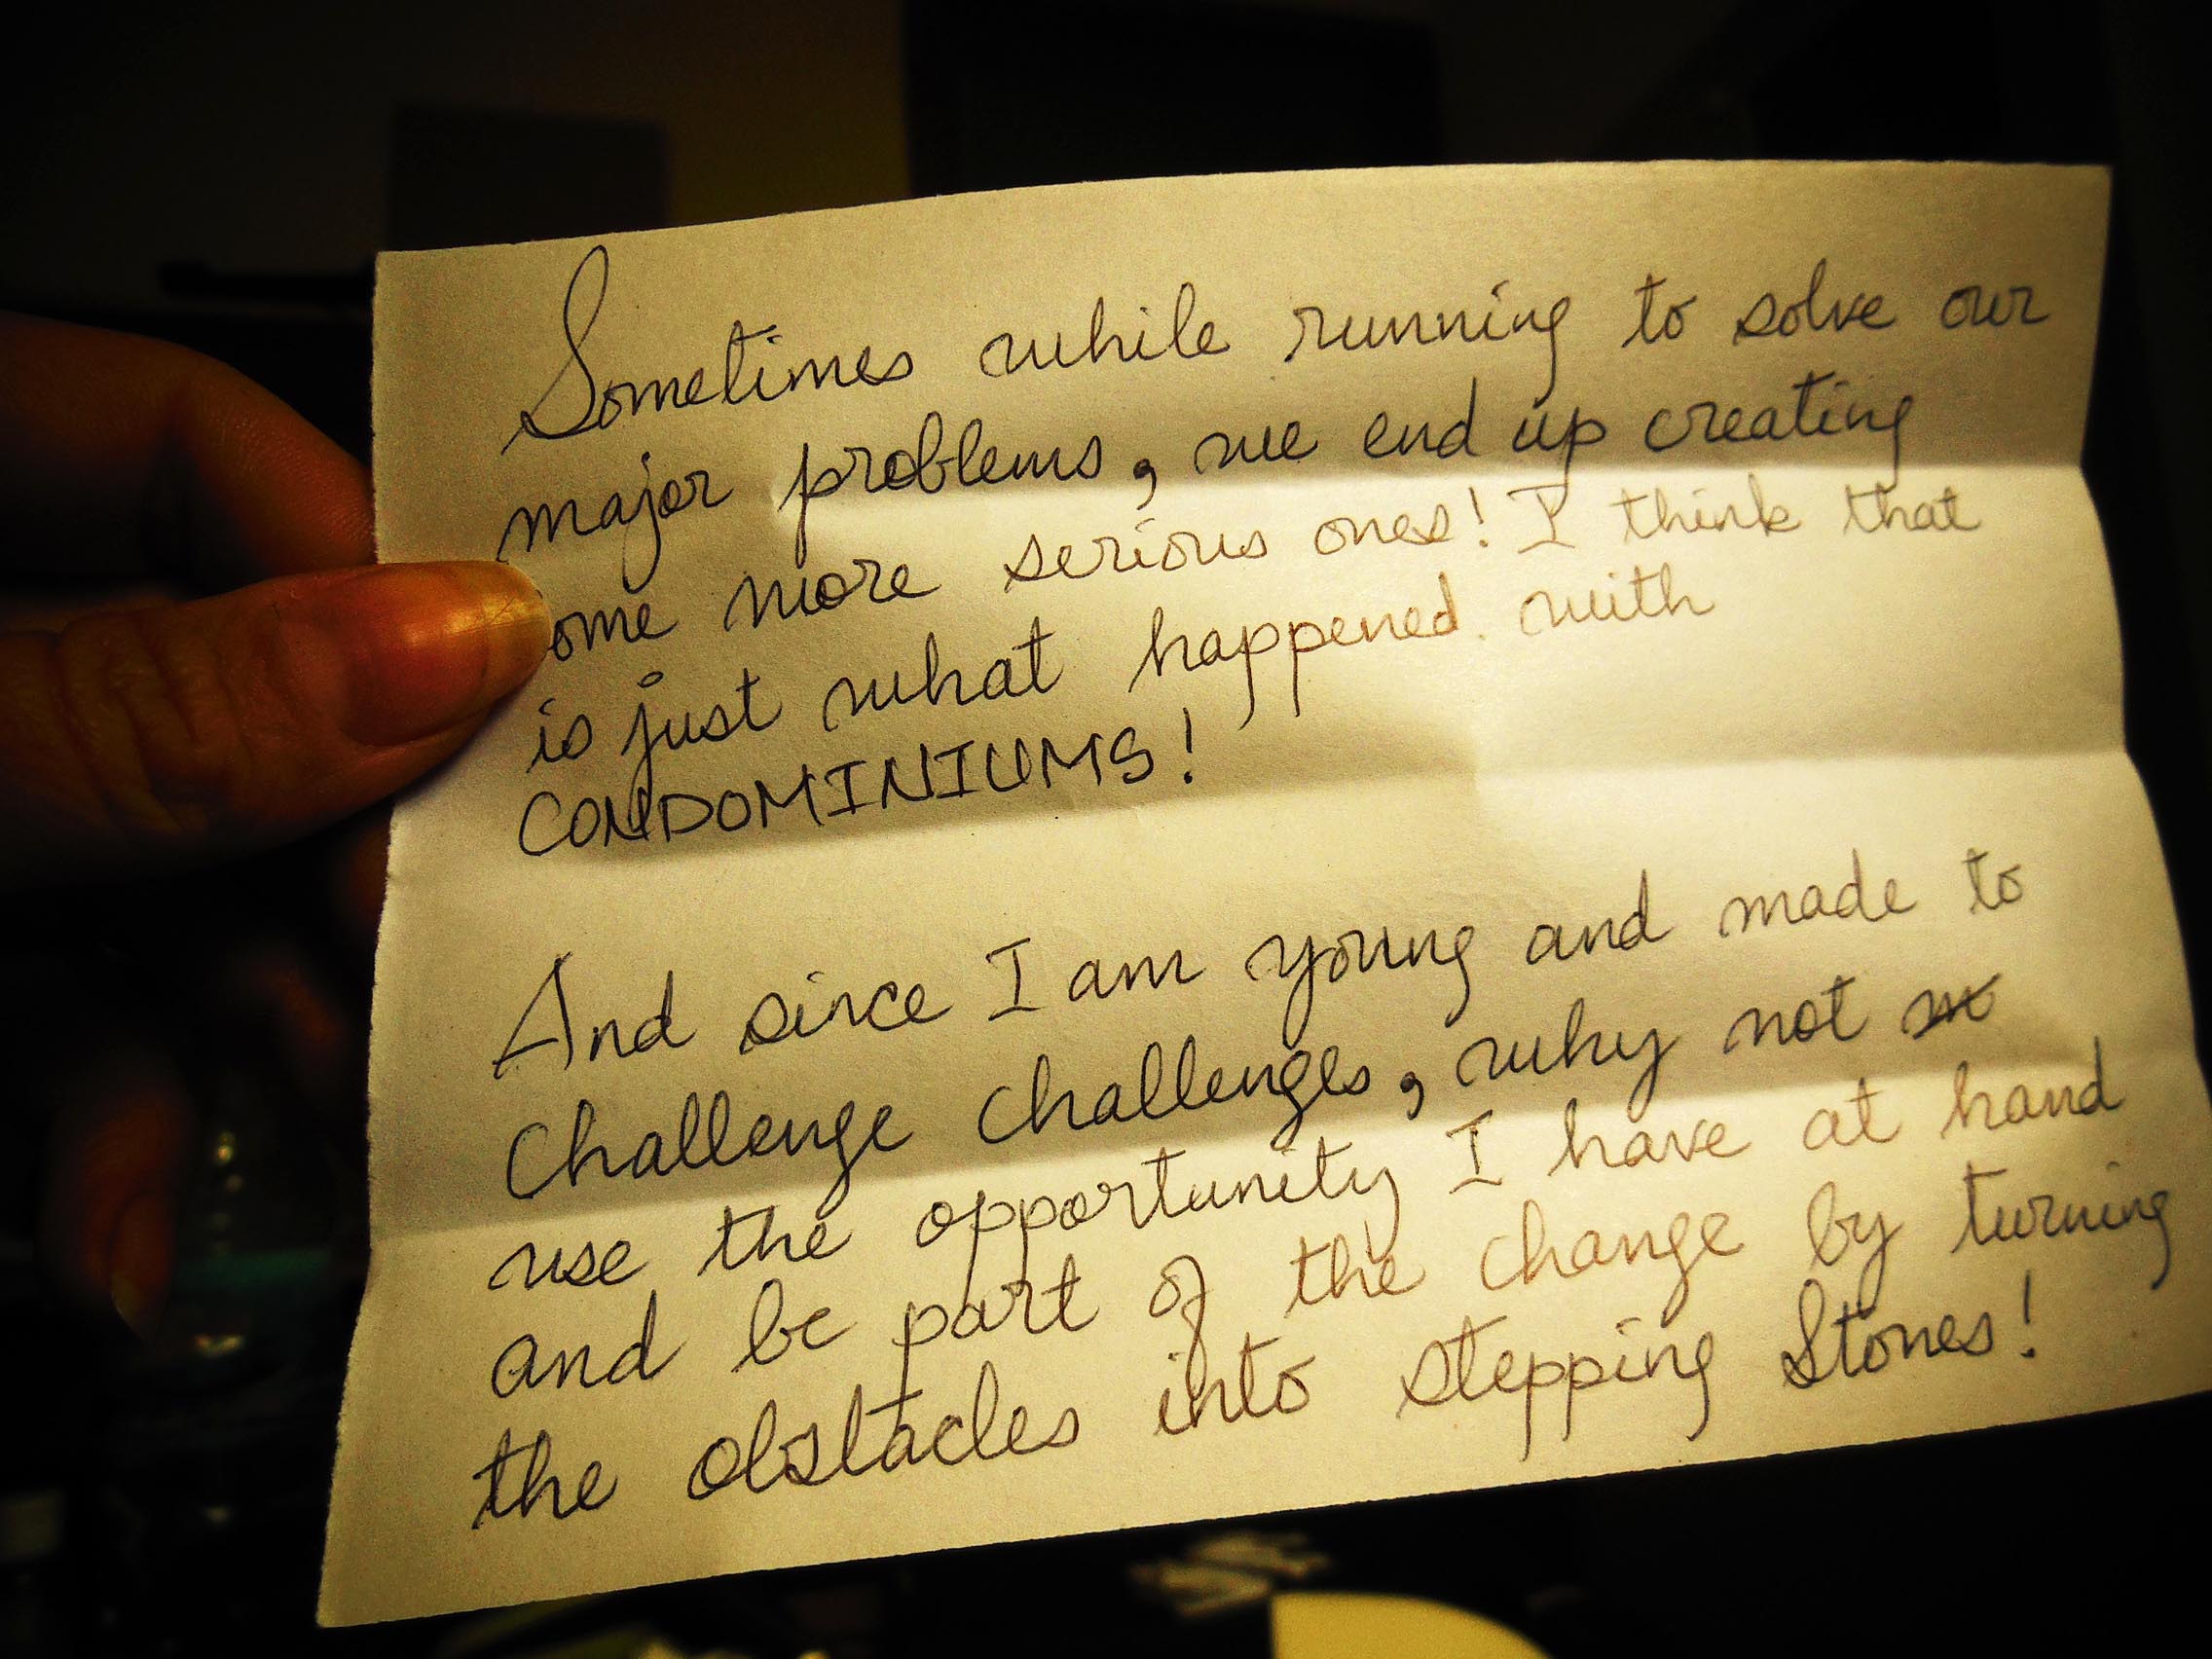 Sometimes while running to solve our
major problems, we end up creating
ome more serious ones! I think that
is just what happened with
CONDOMINIUMS!
And since I am young and made to
Challenge Challenges, why not
use the opportunity I have at hand
and be part of the change by turning
the obstacles into stepping Stones!